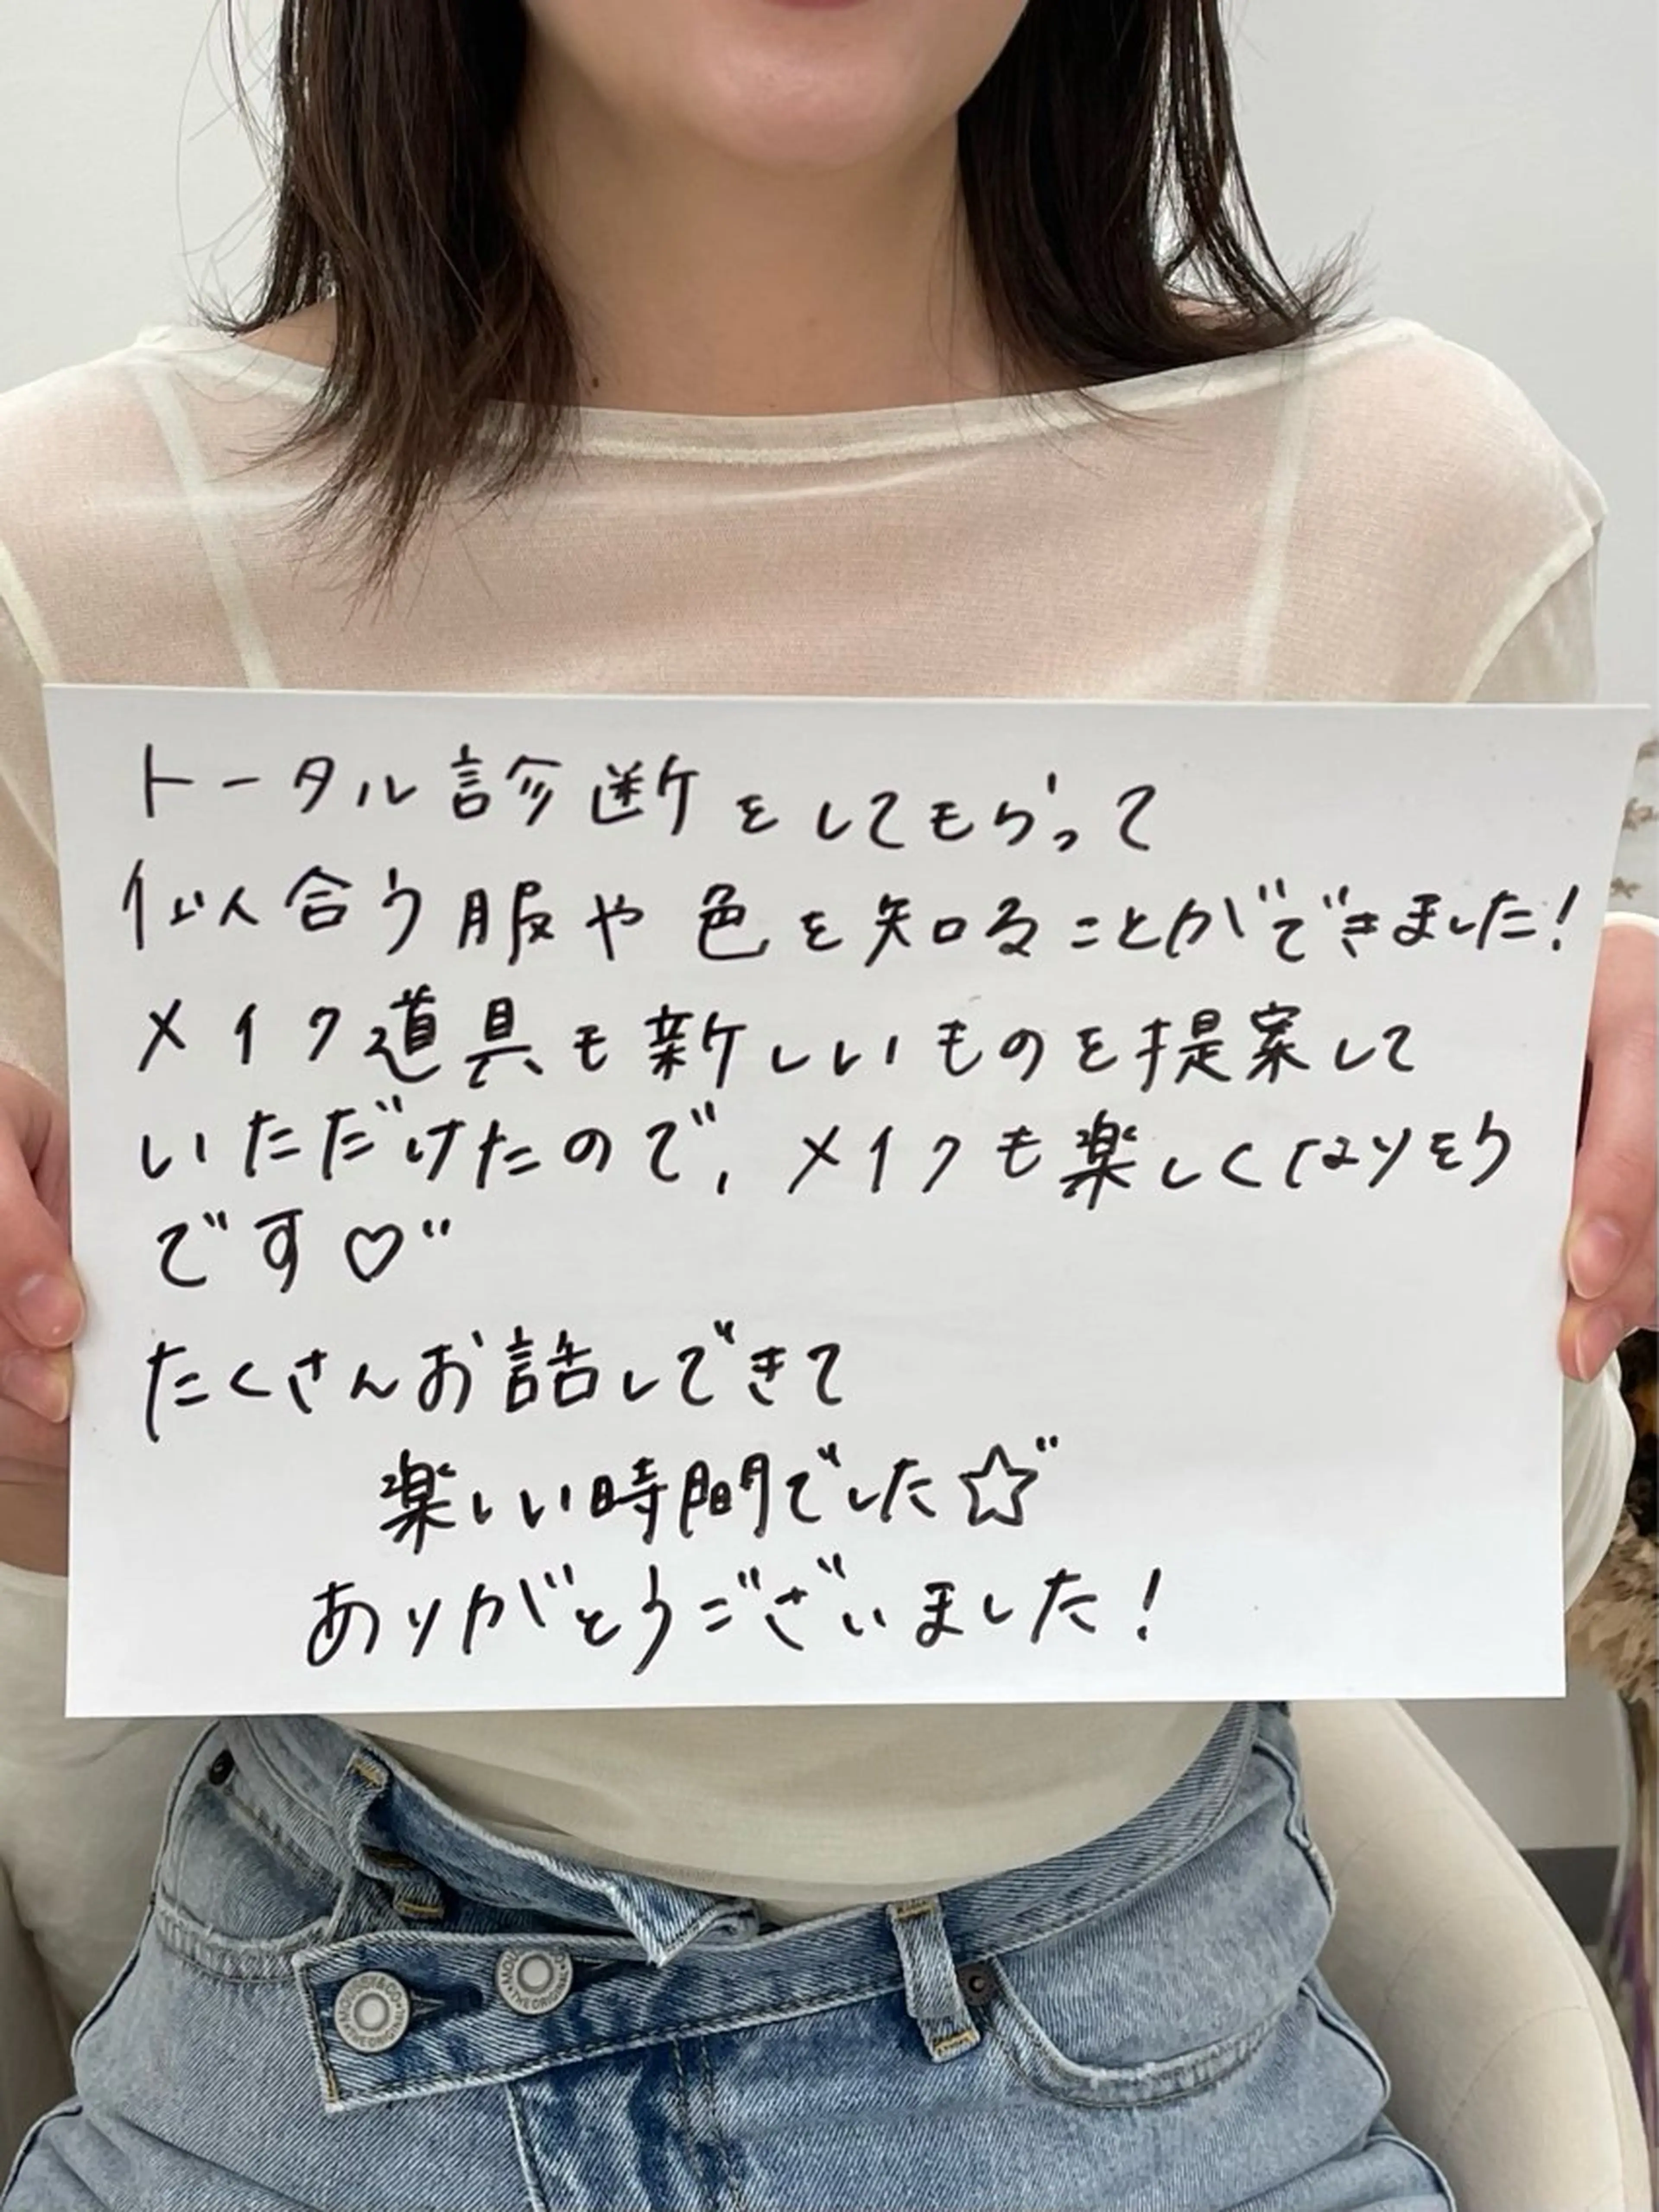 トータル診断をしてもらって
似人合う服や色を知ることができました!
メイク道具も新しいものを提案して
いただけたので、メイクも楽しくなりそう
です♡"
たくさんお話しできて
楽しい時間でした☆"
ありがとうございました!
THE ORIGINAL